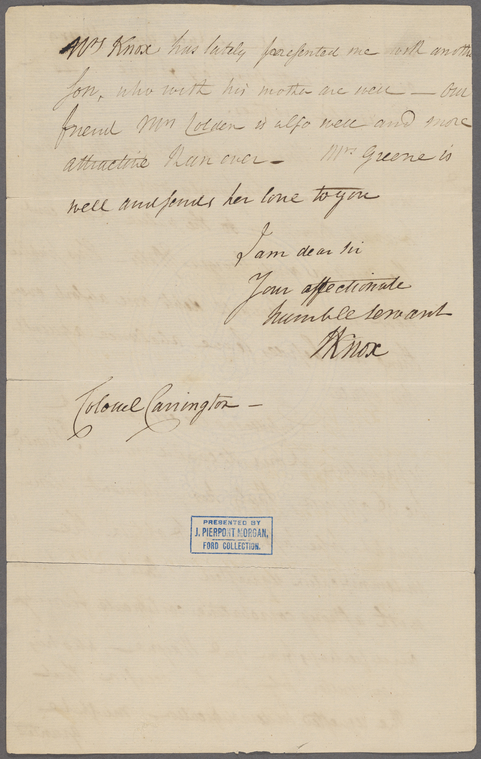 Mrs Knox has lately presented me with anoth
son, who with his mother are well — Our
friend Mrs Colden is also well and more
attractive than ever — Mrs Greene is
well and sends her love to you
I am dear sir
Your affectionate
humble servant
HKnox
Colonel Carrington —
PRESENTED BY
J. PIERPONT MORGAN,
FORD COLLECTION.